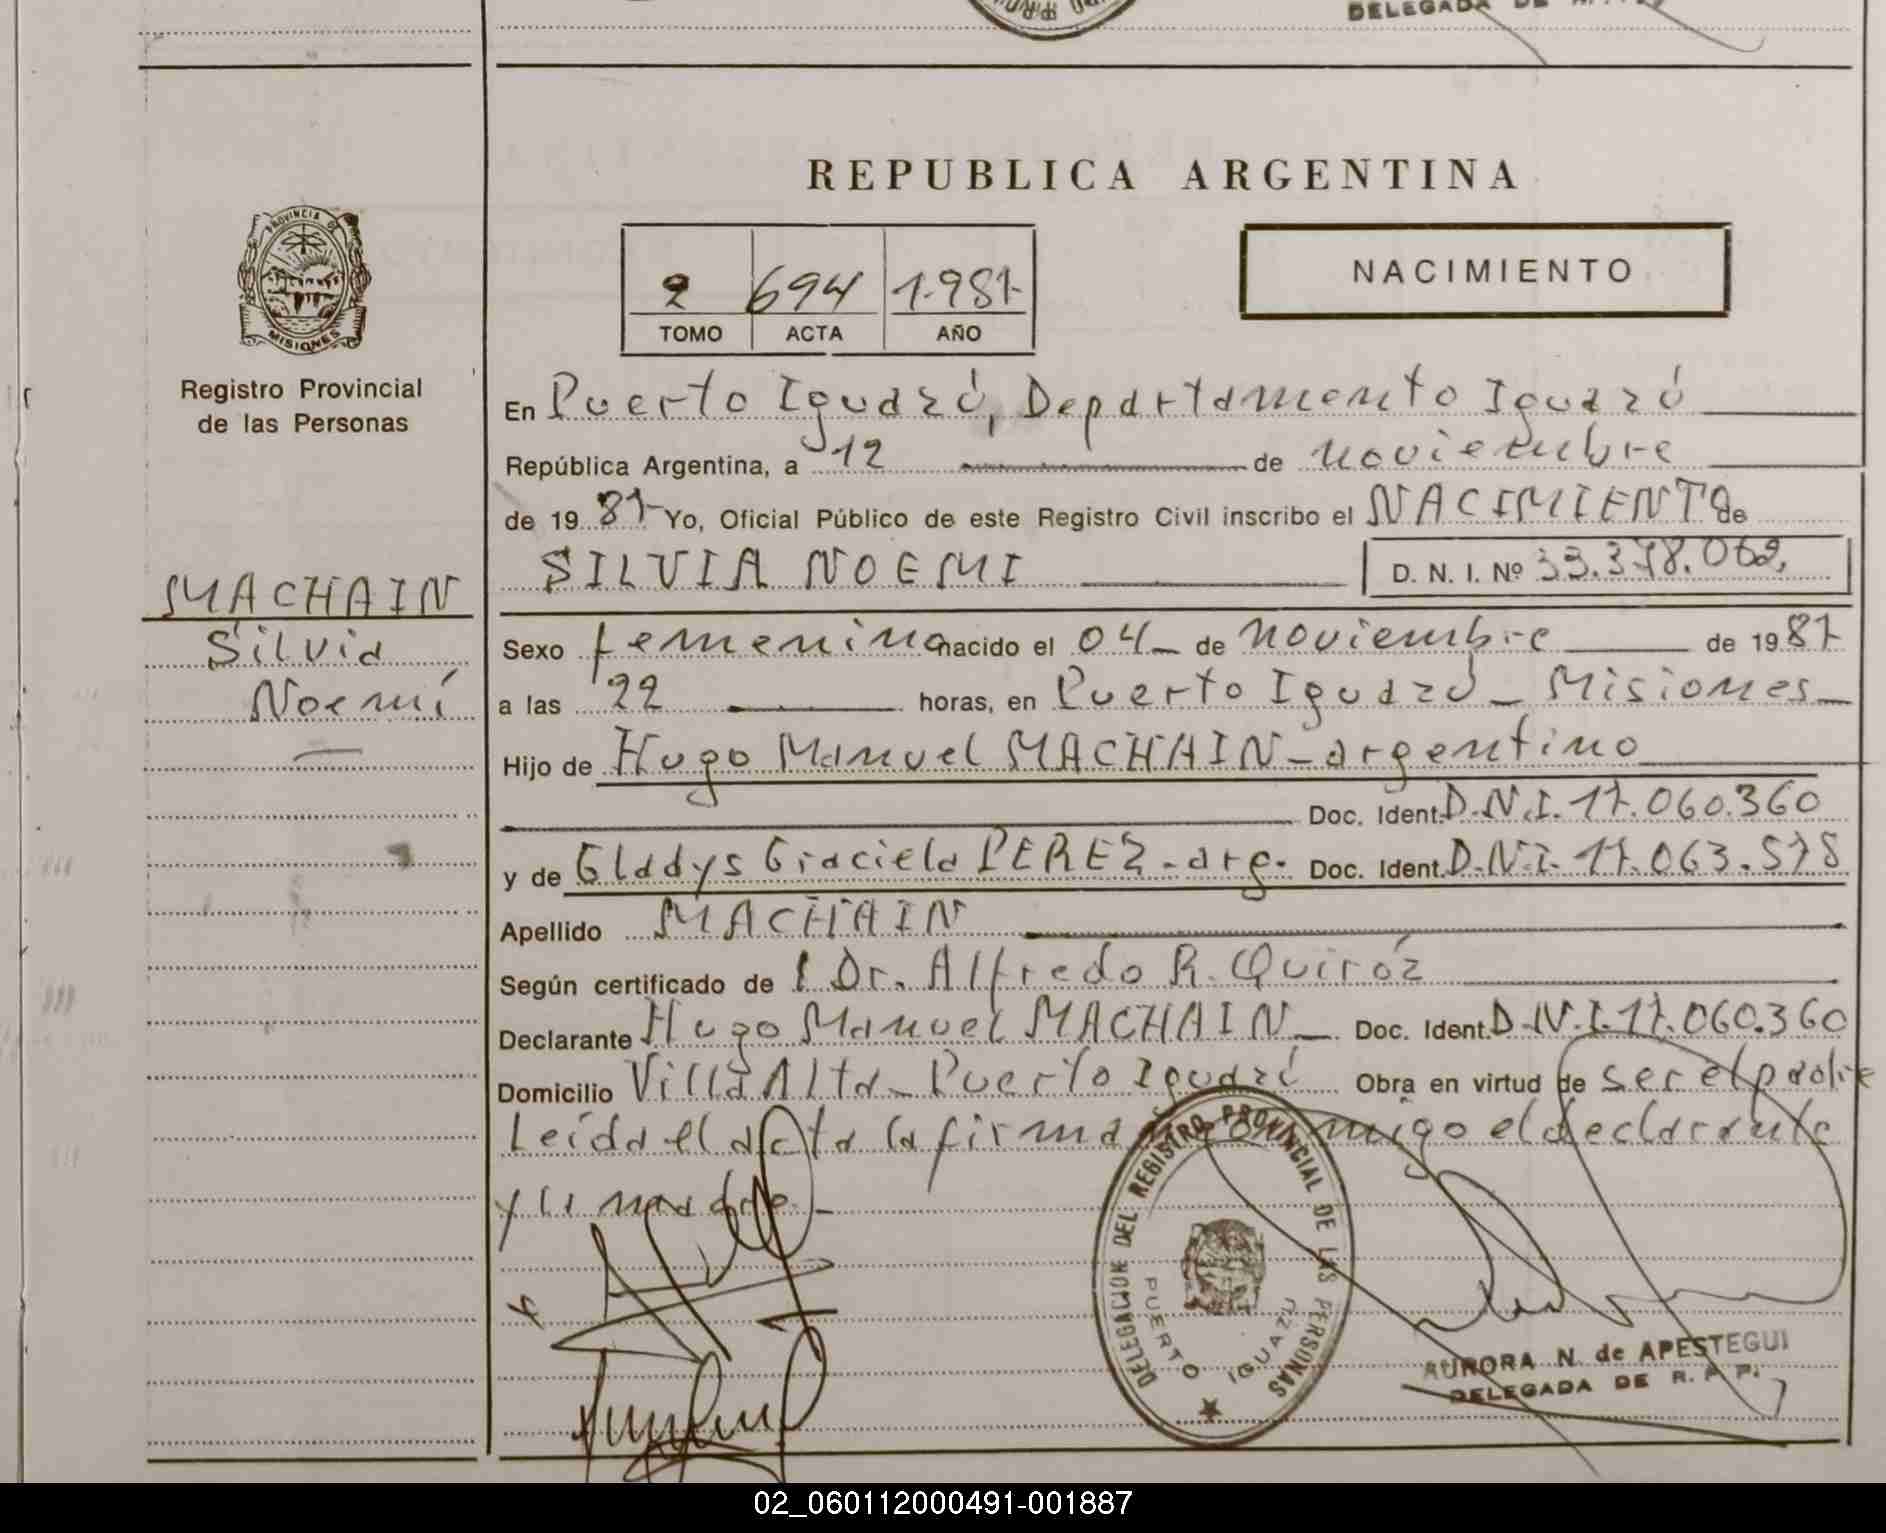 DELEGADA DE
REPUBLICA ARGENTINA
PROVINCIA DE
MISIONES
Registro Provincial
de las Personas
2 694 1.987
TOMO ACTA AÑO
NACIMIENTO
En Puerto Iguazú, Departamento Iguazú
República Argentina, a 12 de noviembre
de 19 87 Yo, Oficial Público de este Registro Civil inscribo el NACIMIENTO de
SILVIA NOEMI D. N. I. Nº 33.378.062.
MACHAIN
Silvia
Noemí
Sexo femenino nacido el 04 de noviembre de 19 87
a las 22 horas, en Puerto Iguazú - Misiones -
Hijo de Hugo Manuel MACHAIN - argentino
Doc. Ident. D.N.I. 17.060.360
y de Gladys Graciela PEREZ - arg. Doc. Ident. D.N.I. 17.063.578
Apellido MACHAIN
Según certificado de l Dr. Alfredo R. Quiróz
Declarante Hugo Manuel MACHAIN Doc. Ident. D.N.I. 17.060.360
Domicilio Villa Alta - Puerto Iguazú Obra en virtud de ser el padre
Leída el acta la firma conmigo el declarante
y la madre. -
DELEGACION DEL REGISTRO PROVINCIAL DE LAS PERSONAS
PUERTO IGUAZU
AURORA N. de APESTEGUI
DELEGADA DE R. P. P.
02_060112000491-001887